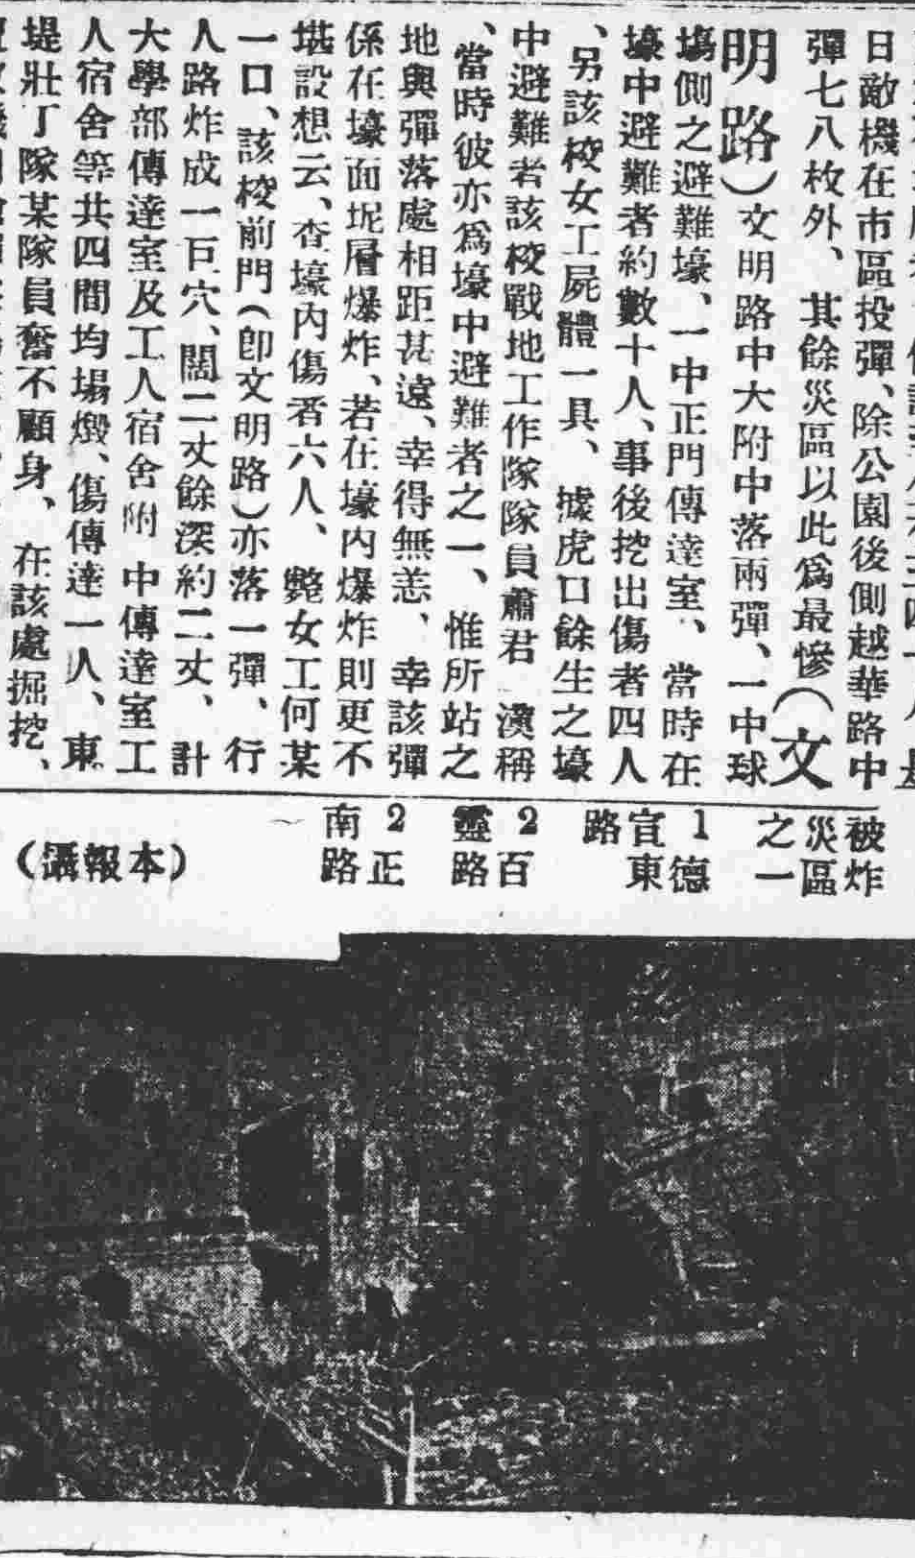 日敵機在市區投彈、除公園後側越華路中
彈七八枚外、其餘災區以此爲最慘(文
明路)文明路中大附中落兩彈、一中球
塲側之避難壕、一中正門傳達室、當時在
壕中避難者約數十人、事後挖出傷者四人
、另該校女工屍體一具、據虎口餘生之壕
中避難者該校戰地工作隊隊員蕭君 漢稱
、當時彼亦爲壕中避難者之一、惟所站之
地與彈落處相距甚遠、幸得無恙、幸該彈
係在壕面坭層爆炸、若在壕內爆炸則更不
堪設想云、查壕內傷者六人、斃女工何某
一口、該校前門(卽文明路)亦落一彈、行
人路炸成一巨穴、闊二丈餘深約二丈、計
大學部傳達室及工人宿舍附 中傳達室工
人宿舍等共四間均塌燬、傷傳達一人、東
堤壯丁隊某隊員奮不顧身、在該處掘挖、
被炸
災區
之一
1德
宣東
路
2百
靈路
2正
南路
(本報攝)